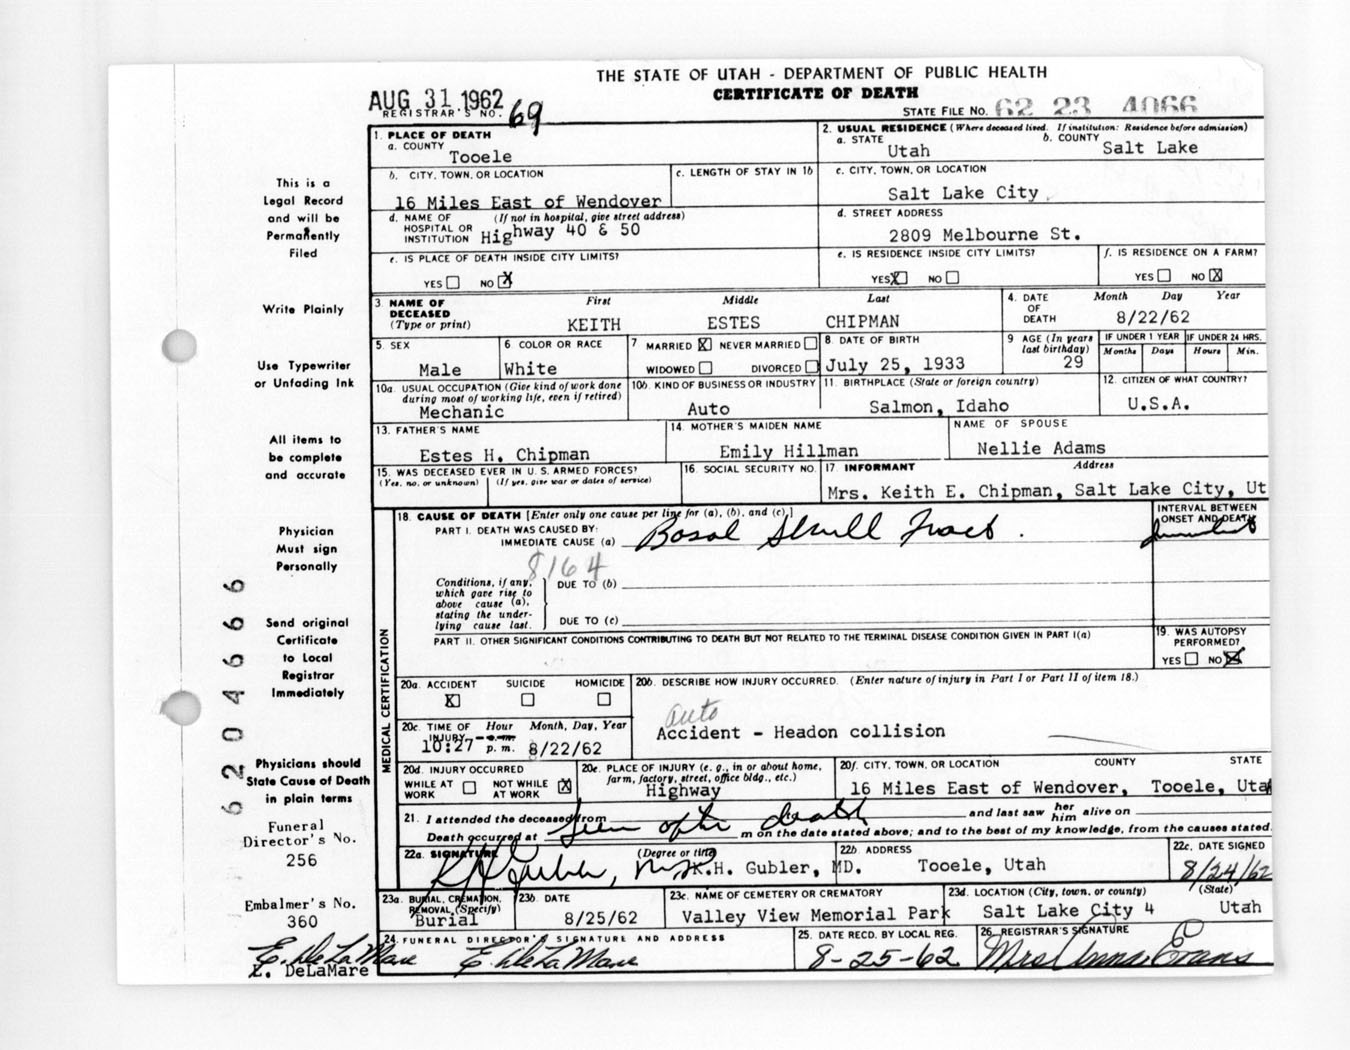 THE STATE OF UTAH - DEPARTMENT OF PUBLIC HEALTH
CERTIFICATE OF DEATH
AUG 31 1962
REGISTRAR'S NO. 69
STATE FILE NO. 62 23 4066
1. PLACE OF DEATH
a. COUNTY
Tooele
2. USUAL RESIDENCE (Where deceased lived. If institution: Residence before admission)
a. STATE
Utah
b. COUNTY
Salt Lake
b. CITY, TOWN, OR LOCATION
16 Miles East of Wendover
c. LENGTH OF STAY IN 1b
c. CITY, TOWN, OR LOCATION
Salt Lake City
d. NAME OF HOSPITAL OR INSTITUTION
(If not in hospital, give street address)
Highway 40 & 50
d. STREET ADDRESS
2809 Melbourne St.
e. IS PLACE OF DEATH INSIDE CITY LIMITS?
YES NO X
e. IS RESIDENCE INSIDE CITY LIMITS?
YES X NO
f. IS RESIDENCE ON A FARM?
YES NO X
3. NAME OF DECEASED
(Type or print)
First Middle Last
KEITH ESTES CHIPMAN
4. DATE OF DEATH
Month Day Year
8/22/62
5. SEX
Male
6 COLOR OR RACE
White
7 MARRIED X NEVER MARRIED
WIDOWED DIVORCED
8. DATE OF BIRTH
July 25, 1933
9 AGE (In years last birthday)
29
IF UNDER 1 YEAR
Months Days
IF UNDER 24 HRS.
Hours Min.
10a. USUAL OCCUPATION (Give kind of work done during most of working life, even if retired)
Mechanic
10b. KIND OF BUSINESS OR INDUSTRY
Auto
11. BIRTHPLACE (State or foreign country)
Salmon, Idaho
12. CITIZEN OF WHAT COUNTRY?
U.S.A.
13. FATHER'S NAME
Estes H. Chipman
14. MOTHER'S MAIDEN NAME
Emily Hillman
NAME OF SPOUSE
Nellie Adams
15. WAS DECEASED EVER IN U. S. ARMED FORCES?
(Yes, no, or unknown) (If yes, give war or dates of service)
16. SOCIAL SECURITY NO.
17. INFORMANT Address
Mrs. Keith E. Chipman, Salt Lake City, Ut
MEDICAL CERTIFICATION
18. CAUSE OF DEATH [Enter only one cause per line for (a), (b), and (c).]
PART I. DEATH WAS CAUSED BY:
IMMEDIATE CAUSE (a) Basal Skull Fract.
INTERVAL BETWEEN ONSET AND DEATH
8164
Conditions, if any, which gave rise to above cause (a), stating the underlying cause last.
DUE TO (b)
DUE TO (c)
PART II. OTHER SIGNIFICANT CONDITIONS CONTRIBUTING TO DEATH BUT NOT RELATED TO THE TERMINAL DISEASE CONDITION GIVEN IN PART I(a)
19. WAS AUTOPSY PERFORMED?
YES NO X
20a. ACCIDENT SUICIDE HOMICIDE
X
20b. DESCRIBE HOW INJURY OCCURRED. (Enter nature of injury in Part I or Part II of item 18.)
auto
Accident - Headon collision
20c. TIME OF INJURY Hour Month, Day, Year
10:27 a.m. p.m. 8/22/62
20d. INJURY OCCURRED
WHILE AT WORK NOT WHILE AT WORK X
20e. PLACE OF INJURY (e. g., in or about home, farm, factory, street, office bldg., etc.)
Highway
20f. CITY, TOWN, OR LOCATION COUNTY STATE
16 Miles East of Wendover, Tooele, Utah
21. I attended the deceased from and last saw her him alive on
Seen after death
Death occurred at m on the date stated above; and to the best of my knowledge, from the causes stated.
22a. SIGNATURE (Degree or title)
K H Gubler, M.D. K.H. Gubler, MD.
22b. ADDRESS
Tooele, Utah
22c. DATE SIGNED
8/24/62
23a. BURIAL, CREMATION, REMOVAL (Specify)
Burial
23b. DATE
8/25/62
23c. NAME OF CEMETERY OR CREMATORY
Valley View Memorial Park
23d. LOCATION (City, town, or county) (State)
Salt Lake City 4 Utah
24. FUNERAL DIRECTOR'S SIGNATURE AND ADDRESS
E. DeLaMare
25. DATE RECD. BY LOCAL REG.
8-25-62
26. REGISTRAR'S SIGNATURE
Mrs Anna Evans
This is a
Legal Record
and will be
Permanently
Filed
Write Plainly
Use Typewriter
or Unfading Ink
All items to
be complete
and accurate
Physician
Must sign
Personally
Send original
Certificate
to Local
Registrar
Immediately
Physicians should
State Cause of Death
in plain terms
Funeral
Director's No.
256
Embalmer's No.
360
E. DeLaMare
E. DeLaMare
620 4666